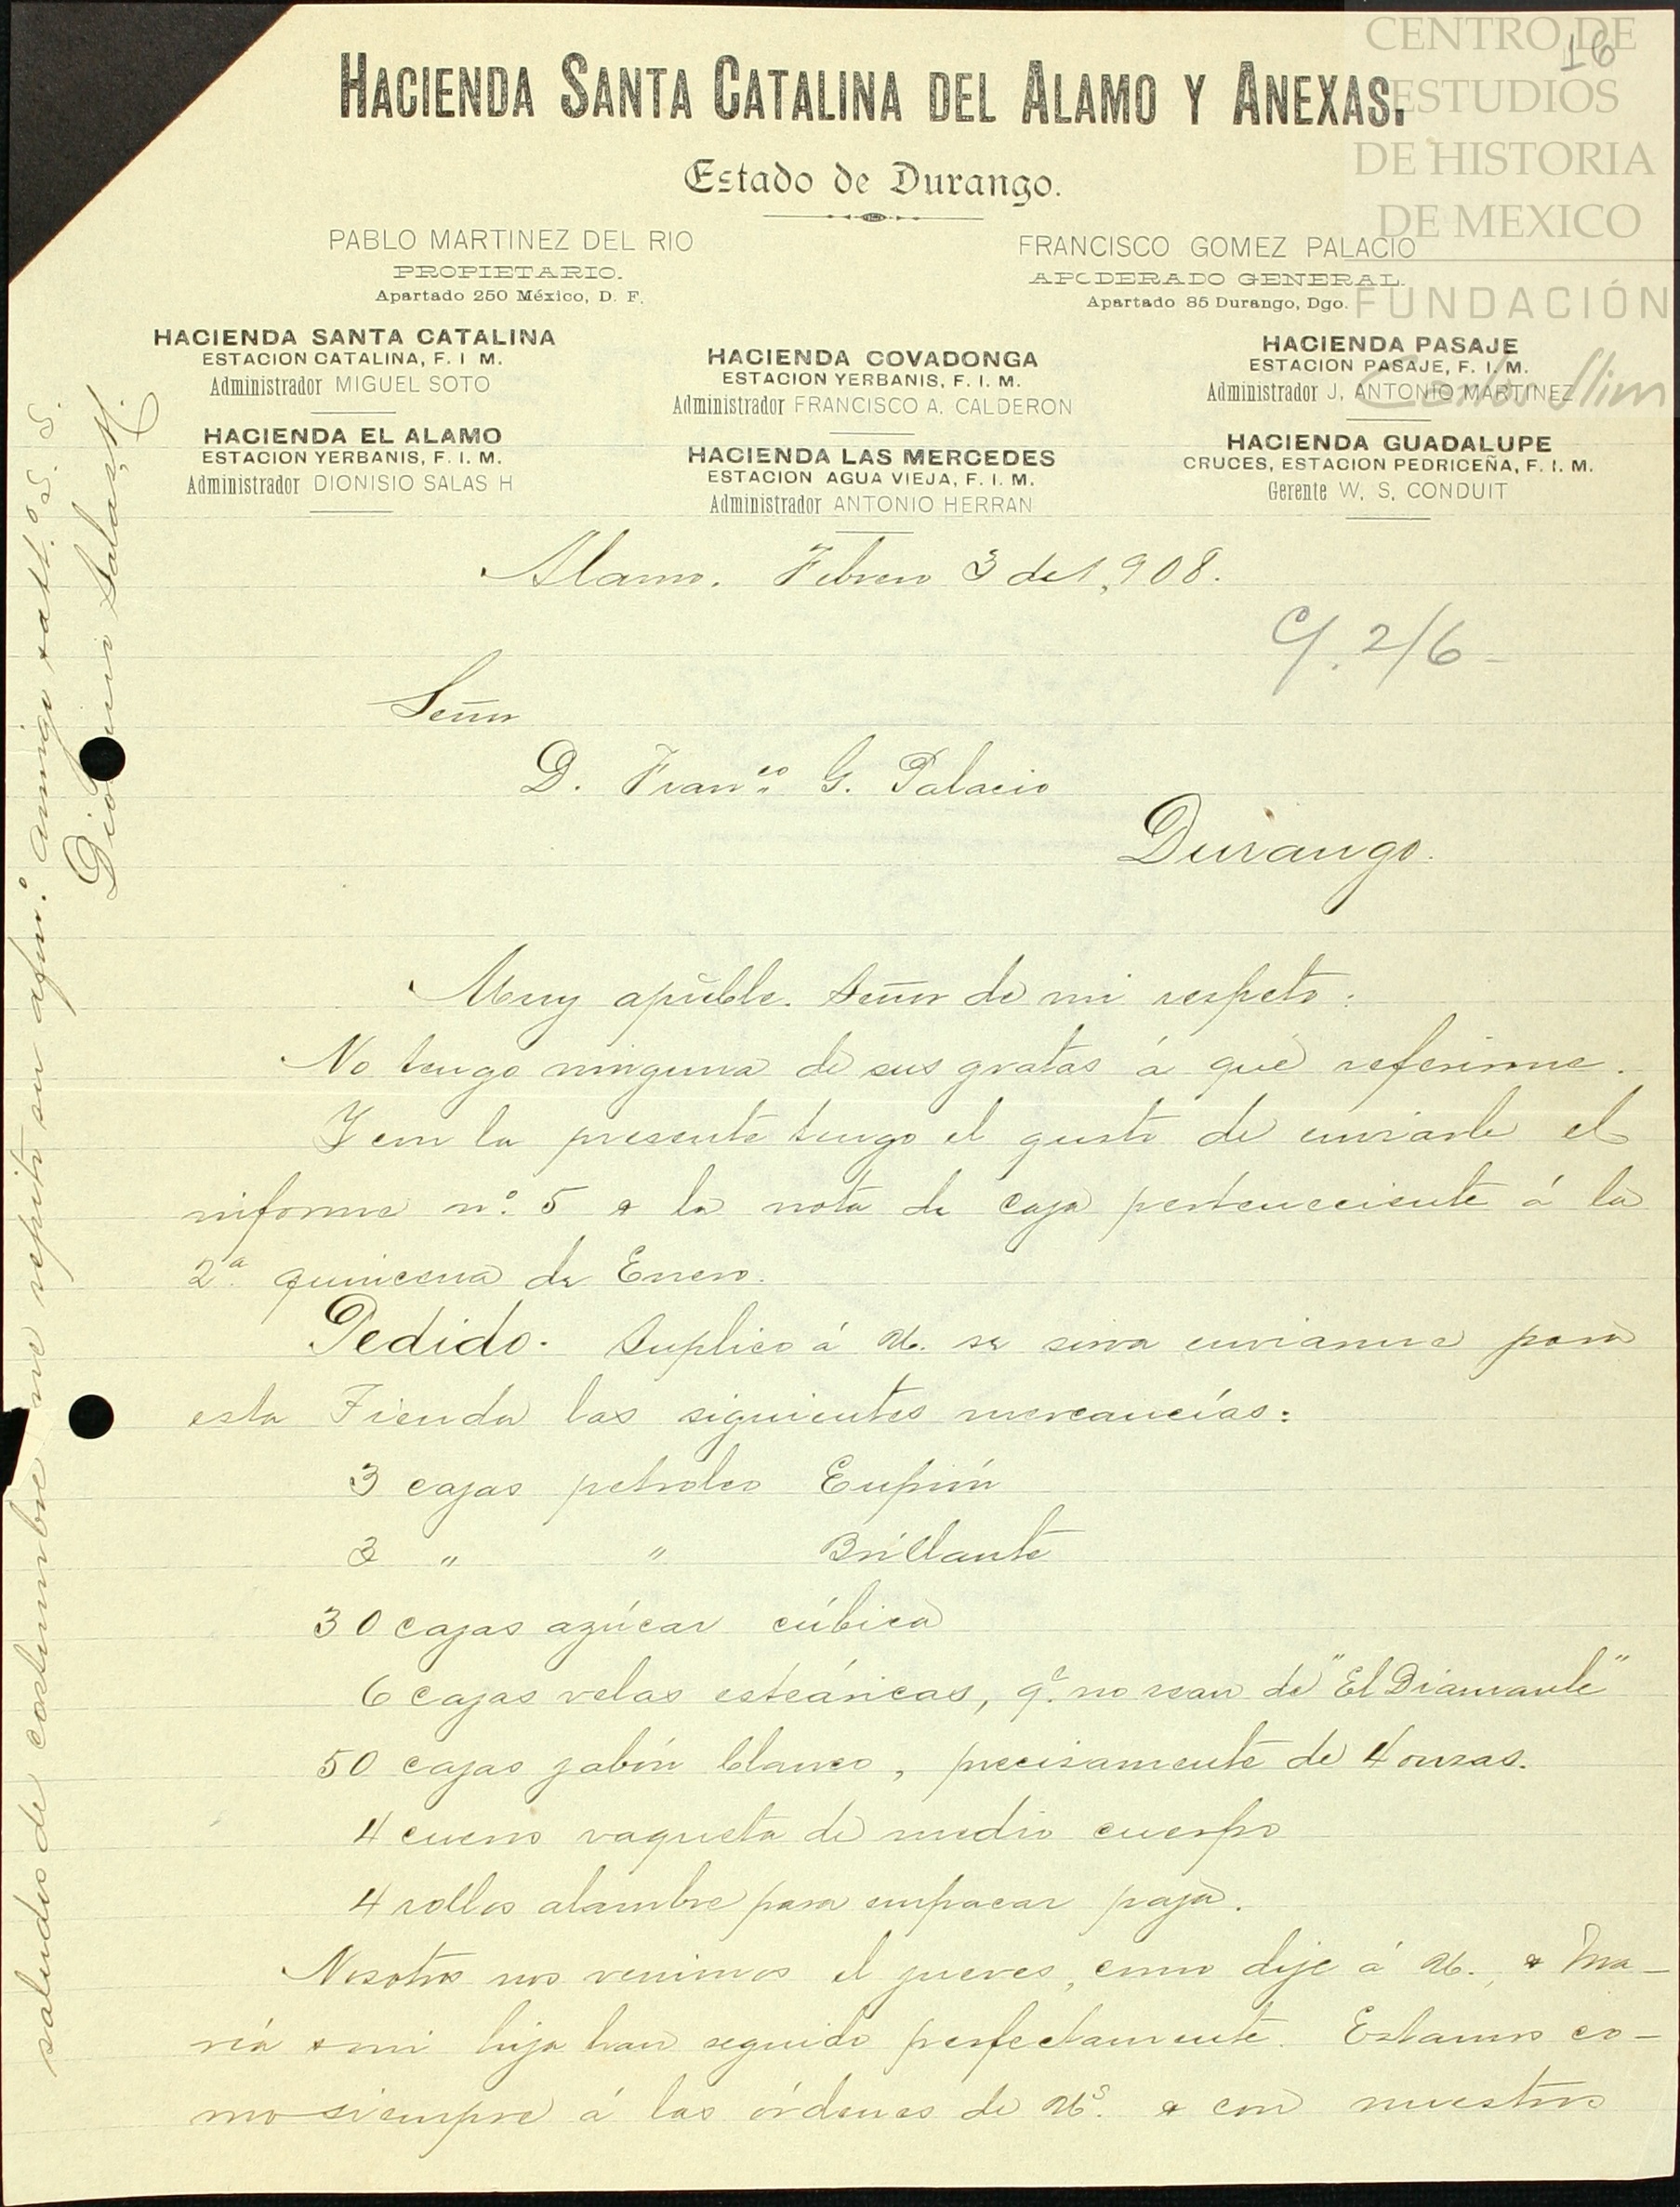 CENTRO DE
ESTUDIOS
DE HISTORIA
DE MEXICO
FUNDACIÓN
Carlos Slim
16
HACIENDA SANTA CATALINA DEL ALAMO Y ANEXAS.
Estado de Durango.
PABLO MARTINEZ DEL RIO
PROPIETARIO.
Apartado 250 México, D. F.
FRANCISCO GOMEZ PALACIO
APODERADO GENERAL.
Apartado 85 Durango, Dgo.
HACIENDA SANTA CATALINA
ESTACION CATALINA, F. I M.
Administrador MIGUEL SOTO
HACIENDA EL ALAMO
ESTACION YERBANIS, F. I. M.
Administrador DIONISIO SALAS H
HACIENDA COVADONGA
ESTACION YERBANIS, F. I. M.
Administrador FRANCISCO A. CALDERON
HACIENDA LAS MERCEDES
ESTACION AGUA VIEJA, F. I. M.
Administrador ANTONIO HERRAN
HACIENDA PASAJE
ESTACION PASAJE, F. I. M.
Administrador J. ANTONIO MARTINEZ
HACIENDA GUADALUPE
CRUCES, ESTACION PEDRICEÑA, F. I. M.
Gerente W. S. CONDUIT
Alamo. Febrero 3 de 1,908.
C/. 2/6-
Señor
D. Franco. G. Palacio
Durango.
Muy apreble. Señor de mi respeto:
No tengo ninguna de sus gratas á que referirme.
Y con la presente tengo el gusto de enviarle el
informe n.º 5 & la nota de caja perteneciente á la
2.ª quincena de Enero.
Pedido. Suplico á U. se sirva enviarme para
esta Tienda las siguientes mercancías:
3 cajas petroleo Eupión
3 " " Brillante
30 cajas azúcar cúbica
6 cajas velas esteáricas, qe. no sean de "El Diamante"
50 cajas jabón blanco, precisamente de 4 onzas.
4 cueros vaqueta de medio cuerpo
4 rollos alambre para empacar paja.
Nosotros nos venimos el jueves, como dije á U., & Ma-
ría & mi hija han seguido perfectamente. Estamos co-
mo siempre á las órdenes de Us. & con nuestros
saludos de costumbre me repito su afmo. amigo & att.º S. S.
Dionisio Salas H.